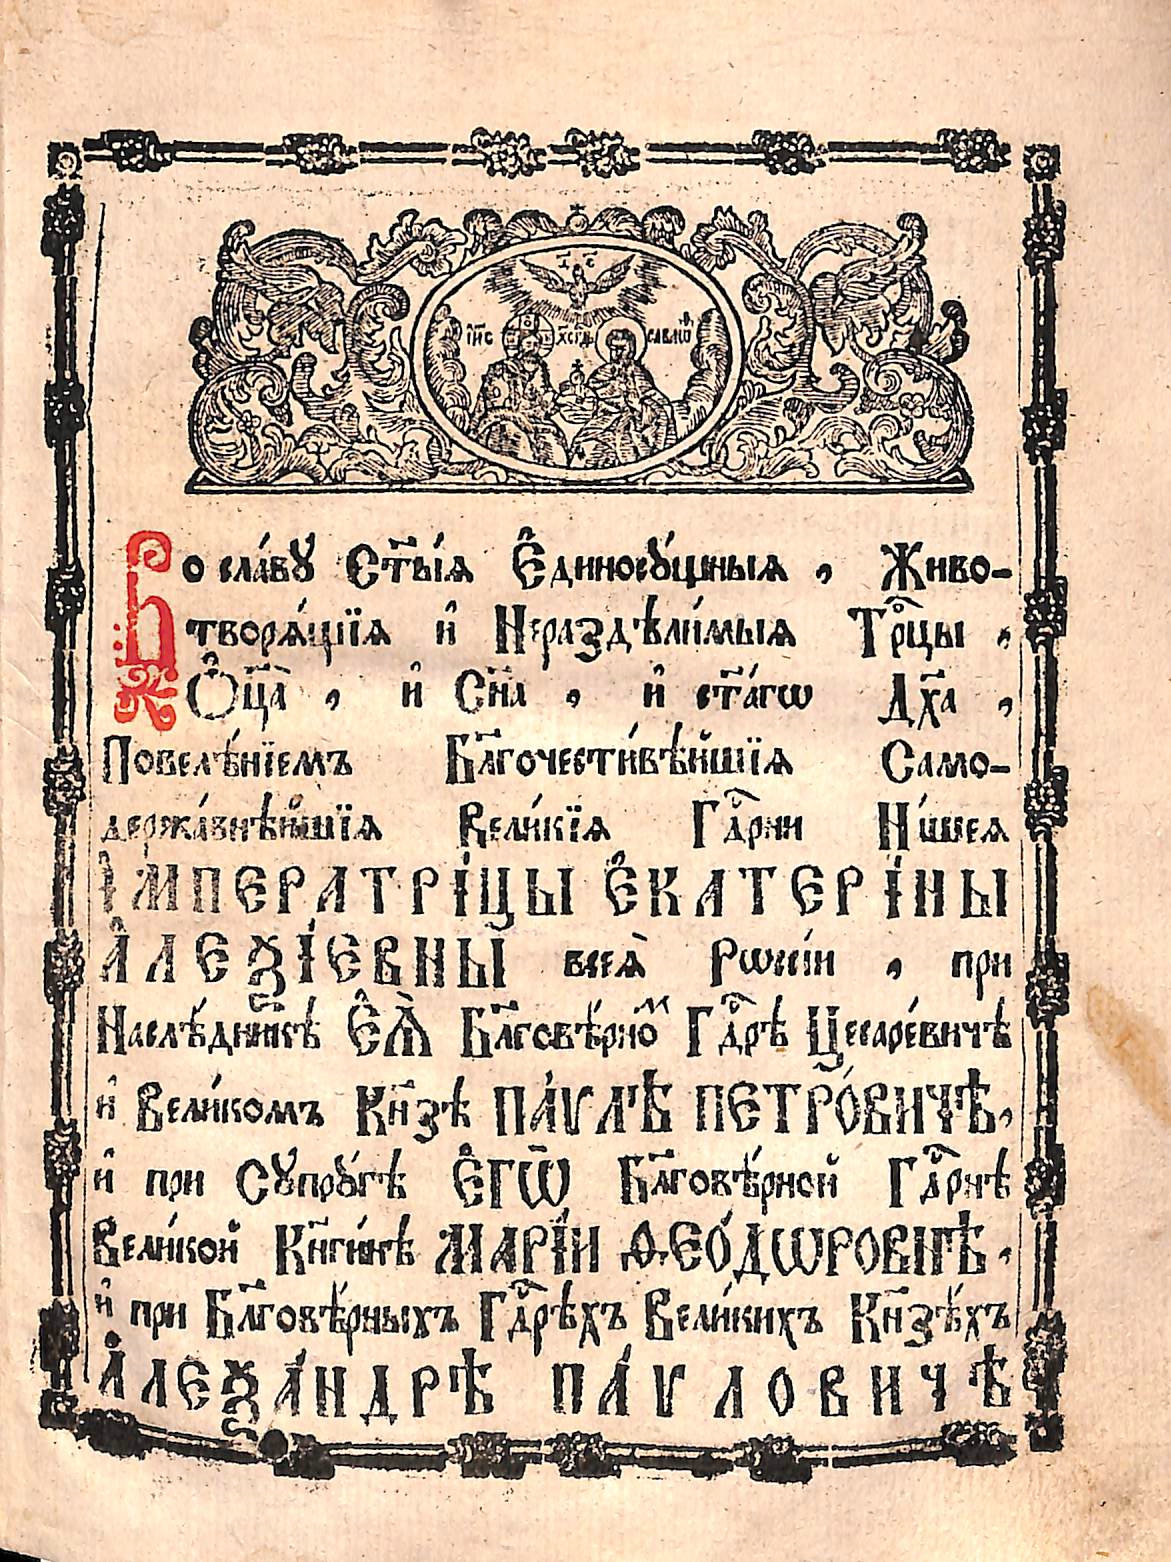 І҃С
І҆И҃С Х҃С І҆Ѡ҃ САВАѠ҆Ѳ
Во сла́вꙋ Ст҃ы́ѧ Е҆диносꙋ́щныѧ , Живо-
творѧ́щїѧ и҆ Нераздѣли́мыѧ Трⷪ҇цы ,
Ѻ҆ц҃а̀ , и҆ Сн҃а , и҆ ст҃а́гѡ Дх҃а ,
Повелѣ́нїемъ Бл҃гочести́вѣйшїѧ Само-
держа́внѣйшїѧ Вели́кїѧ Гдⷭ҇рни На́шеѧ
І҆МПЕРАТРІ́ЦЫ Е҆КАТЕРІ́НЫ
А҆ЛЕѮІ́ЕВНЫ всеѧ̀ Рѡссі́и , при
Наслѣ́дникѣ Е҆Ѧ̀ Бл҃говѣ́рномъ Гдⷭ҇рѣ Цесаре́вичѣ
и҆ Вели́комъ Кн҃зѣ ПА́ѴЛѢ ПЕТРО́ВИЧѢ,
и҆ при Сꙋпрꙋ́гѣ Е҆ГѠ̀ Бл҃говѣ́рной Гдⷭ҇рнѣ
Вели́кой Кн҃ги́нѣ МАРІ́И ѲЕО́ДѠРОВНѢ,
и҆ при Бл҃говѣ́рныхъ Гдⷭ҇рѣхъ Вели́кихъ Кн҃зѣ́хъ
А҆ЛЕѮА́НДРѢ ПА́ѴЛОВИЧѢ